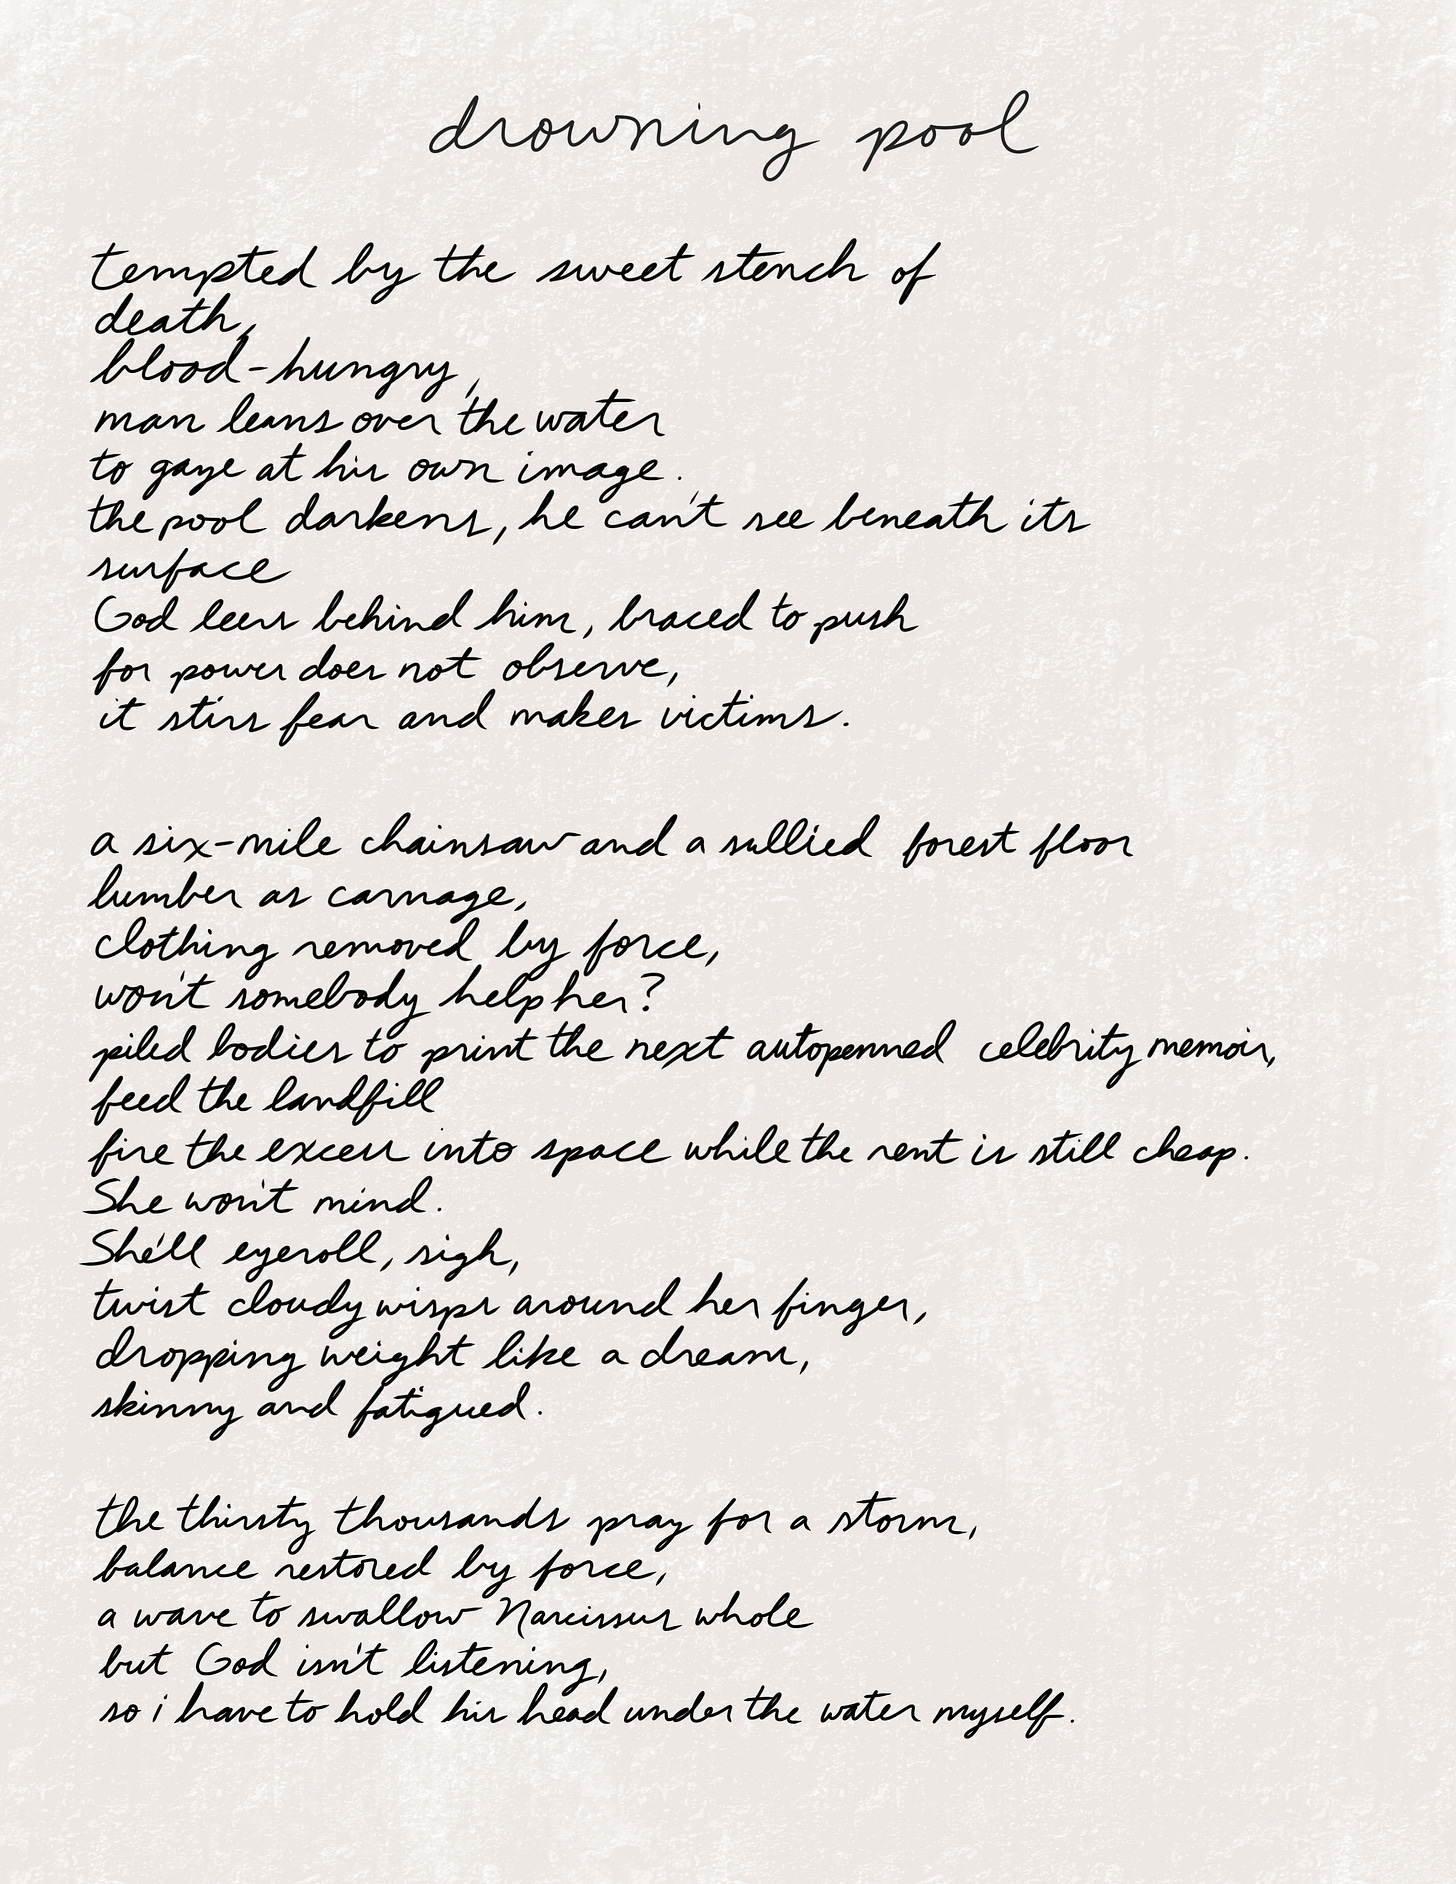 drowning pool
tempted by the sweet stench of
death,
blood-hungry,
man leans over the water
to gaze at his own image.
the pool darkens, he can't see beneath its
surface
God leers behind him, braced to push
for power does not observe,
it stirs fear and makes victims.
a six-mile chainsaw and a sullied forest floor
lumber as carnage,
clothing removed by force,
won't somebody help her?
piled bodies to print the next autopenned celebrity memoir,
feed the landfill
fire the excess into space while the rent is still cheap.
She won't mind.
She'll eyeroll, sigh,
twist cloudy wisps around her finger,
dropping weight like a dream,
skinny and fatigued.
the thirsty thousands pray for a storm,
balance restored by force,
a wave to swallow Narcissus whole
but God isn't listening,
so i have to hold his head under the water myself.